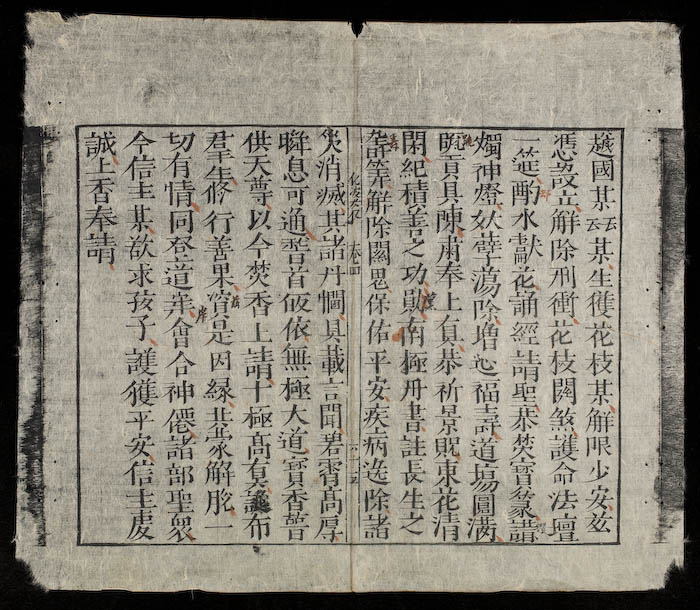 越國某云某生獲花枝某解限少安玆
憑設立解除刑衝花枝關煞護命法壇
一筵酌水獻花誦經請聖恭焚寳篆請
燭神燈妖孽蕩除增延福壽道塲圓滿
旣貢具陳甫奉上眞恭祈景貺東花清
閑紀積善之功勛南極丹書註長生之
籌筭解除關思保佑平安疾病迯除諸
災消滅其諸丹悃具載言聞碧霄髙厚
瞬息可通稽首皈依無極大道寳香普
供天尊以今焚香上請十極髙眞誕布
羣生修行善果實是因緣共䝉解脫一
切有情同登道岸會合神僊諸部聖衆
今信主某欲求孩子護獲平安信主虔
誠上香奉請
卷四